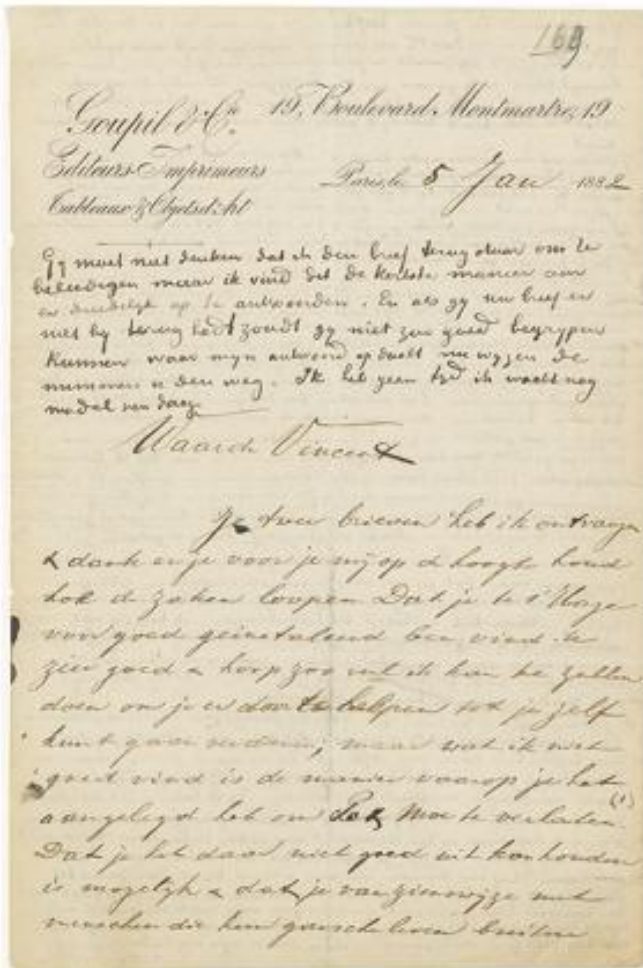 169
Goupil & Cie 19, Boulevard Montmartre, 19
Editeurs-Imprimeurs
Paris, le 5 Jan 1882
Tableaux & Objets d'Art
Gy moet niet denken dat ik den brief terug stuur om te
beleedigen maar ik vind dit de kortste manier om
er duidelijk op te antwoorden. En als gy uw brief er
niet by terug hadt zoudt gy niet zoo goed begrypen
kunnen waar myn antwoord op doelt nu wyzen de
nummers u den weg. Ik heb geen tyd ik wacht nog
model van daag.
Waarde Vincent
Je twee brieven heb ik ontvangen
& dank er je voor je mij op de hoogte houd
hoe de zaken loopen Dat je te s'Hage
voor goed geinstaleerd ben vind ik
zeer goed & hoop zoo veel ik kan te zullen
doen om je er door te helpen tot je zelf
kunt gaan verdienen, maar wat ik niet
goed vind is de manier waarop je het
aangelegd hebt om Pa & Moe te verlaten
(1)
Dat je het daar niet goed uit kon houden
is mogelyk & dat je van zienswyze met
menschen die hun gansche leven buiten